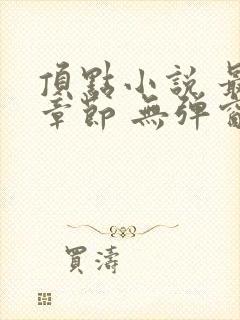 頂點小說 最
章節 無彈窗
買濤